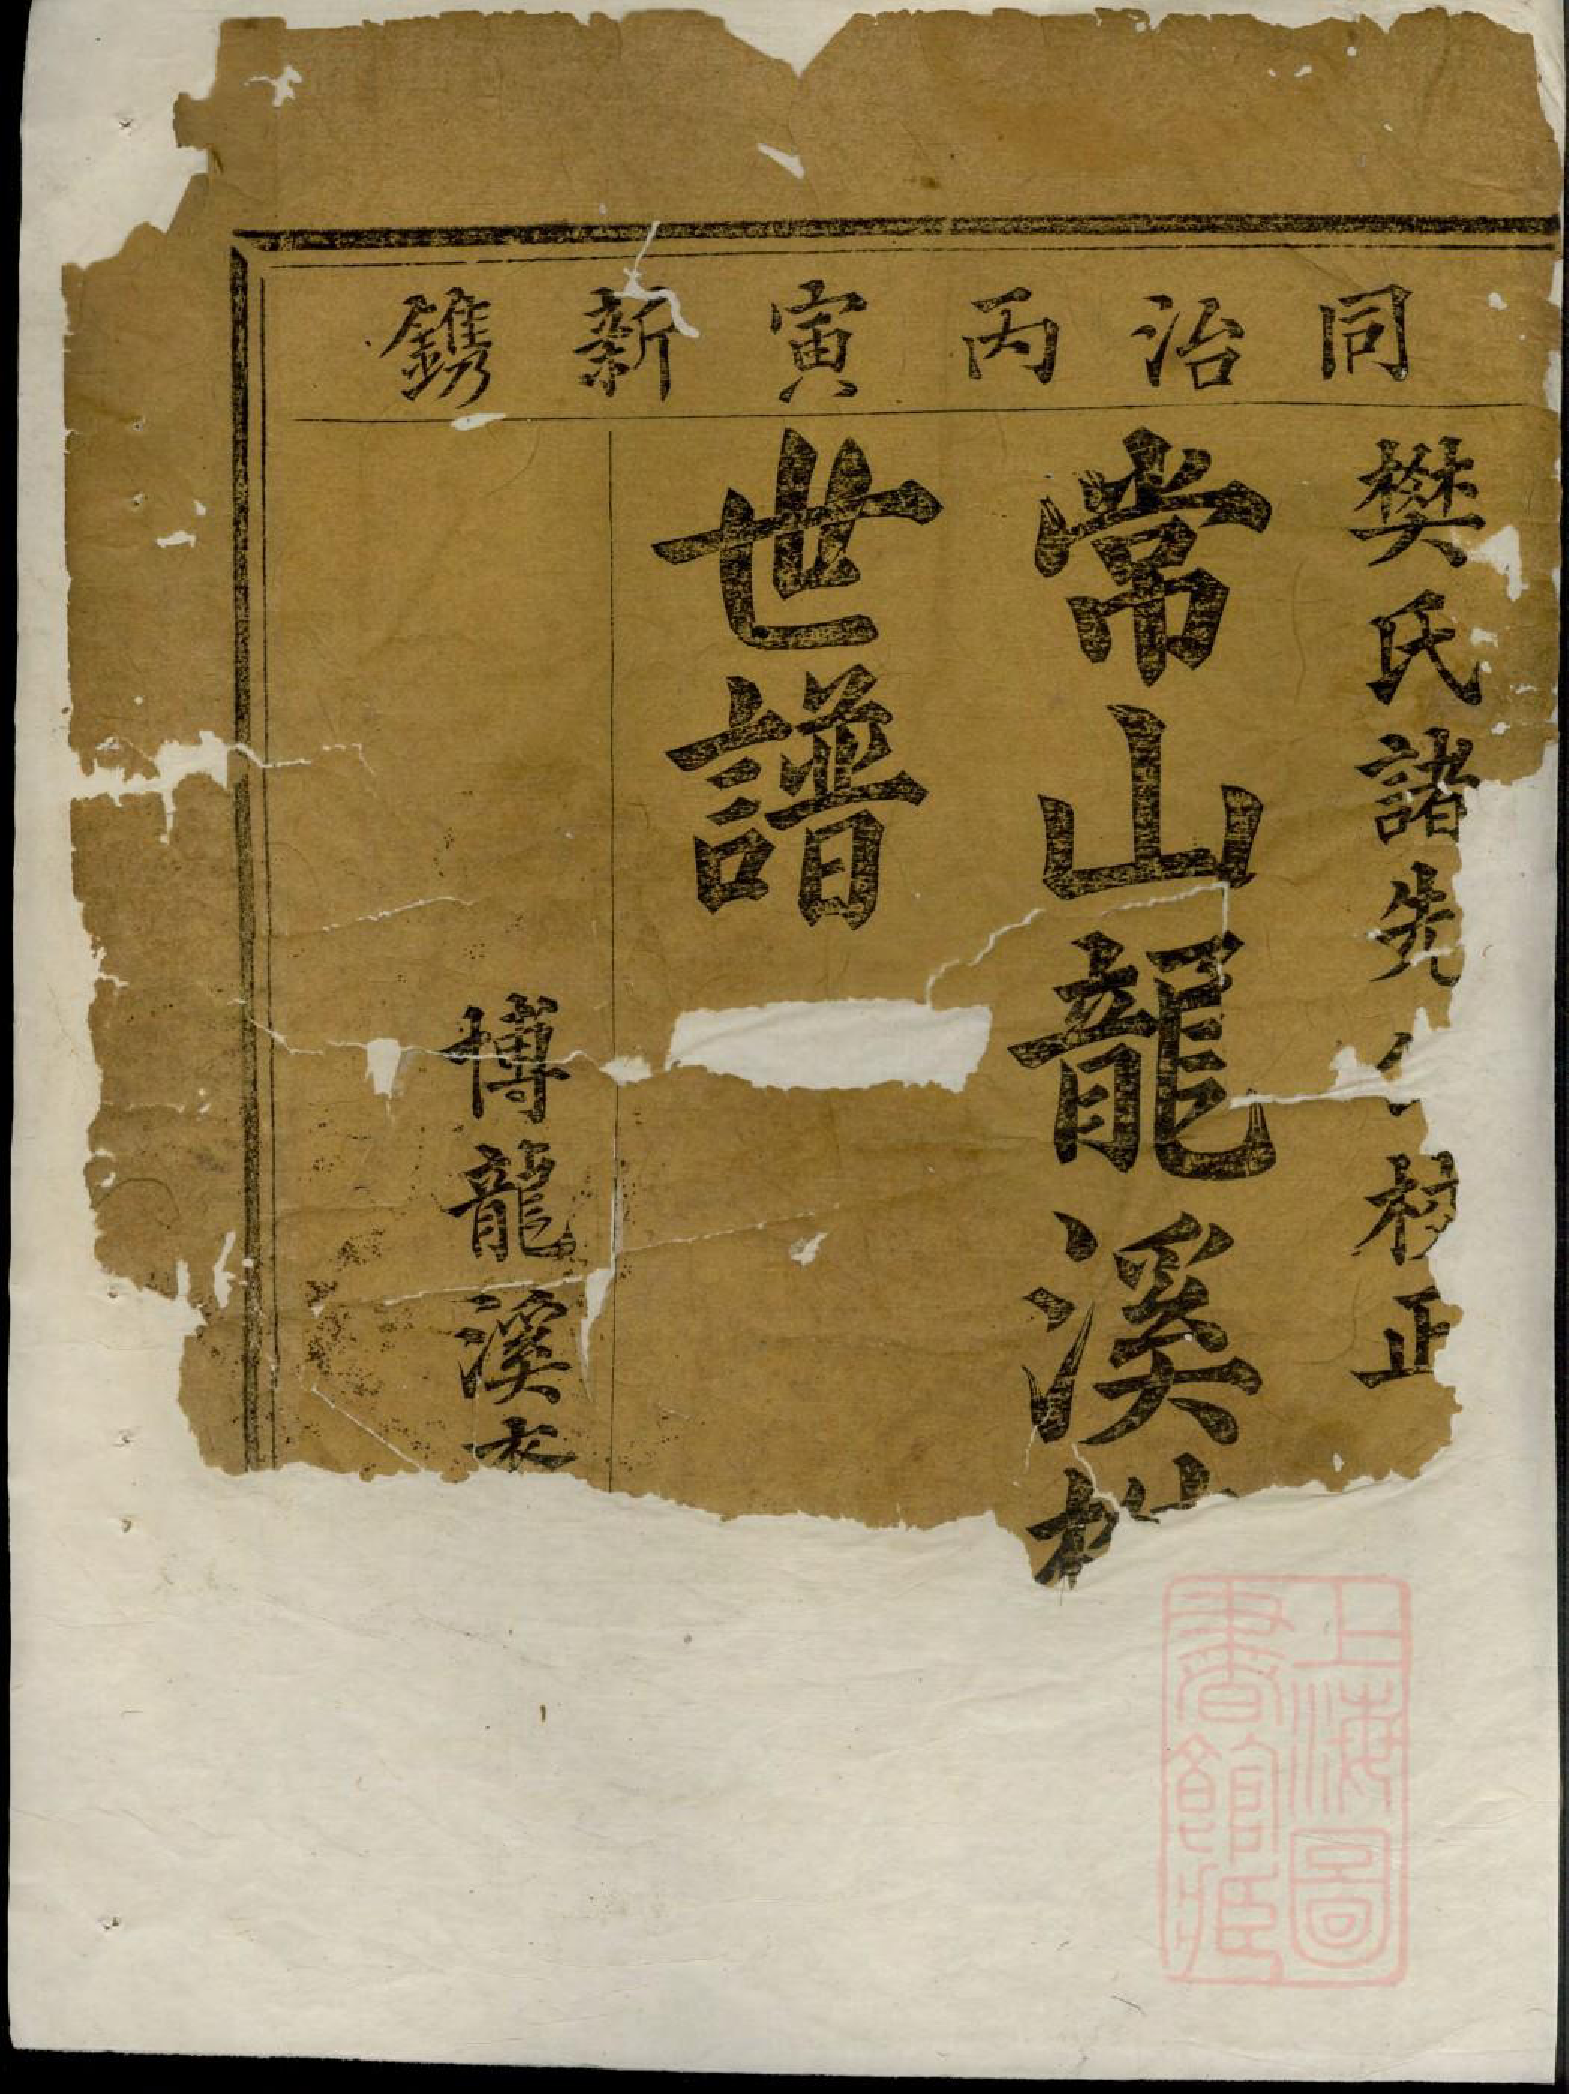 同治丙寅新鐫
樊氏諸先校正
常山龍溪
世譜
博龍溪
上海圖
書館藏